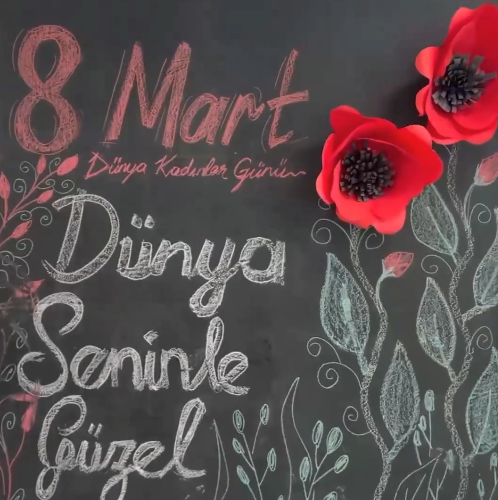 8 Mart
Dünya Kadınlar Günü
Dünya
Seninle
Güzel